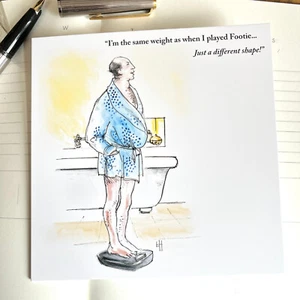 "I'm the same weight as when I played Footie...
Just a different shape!"